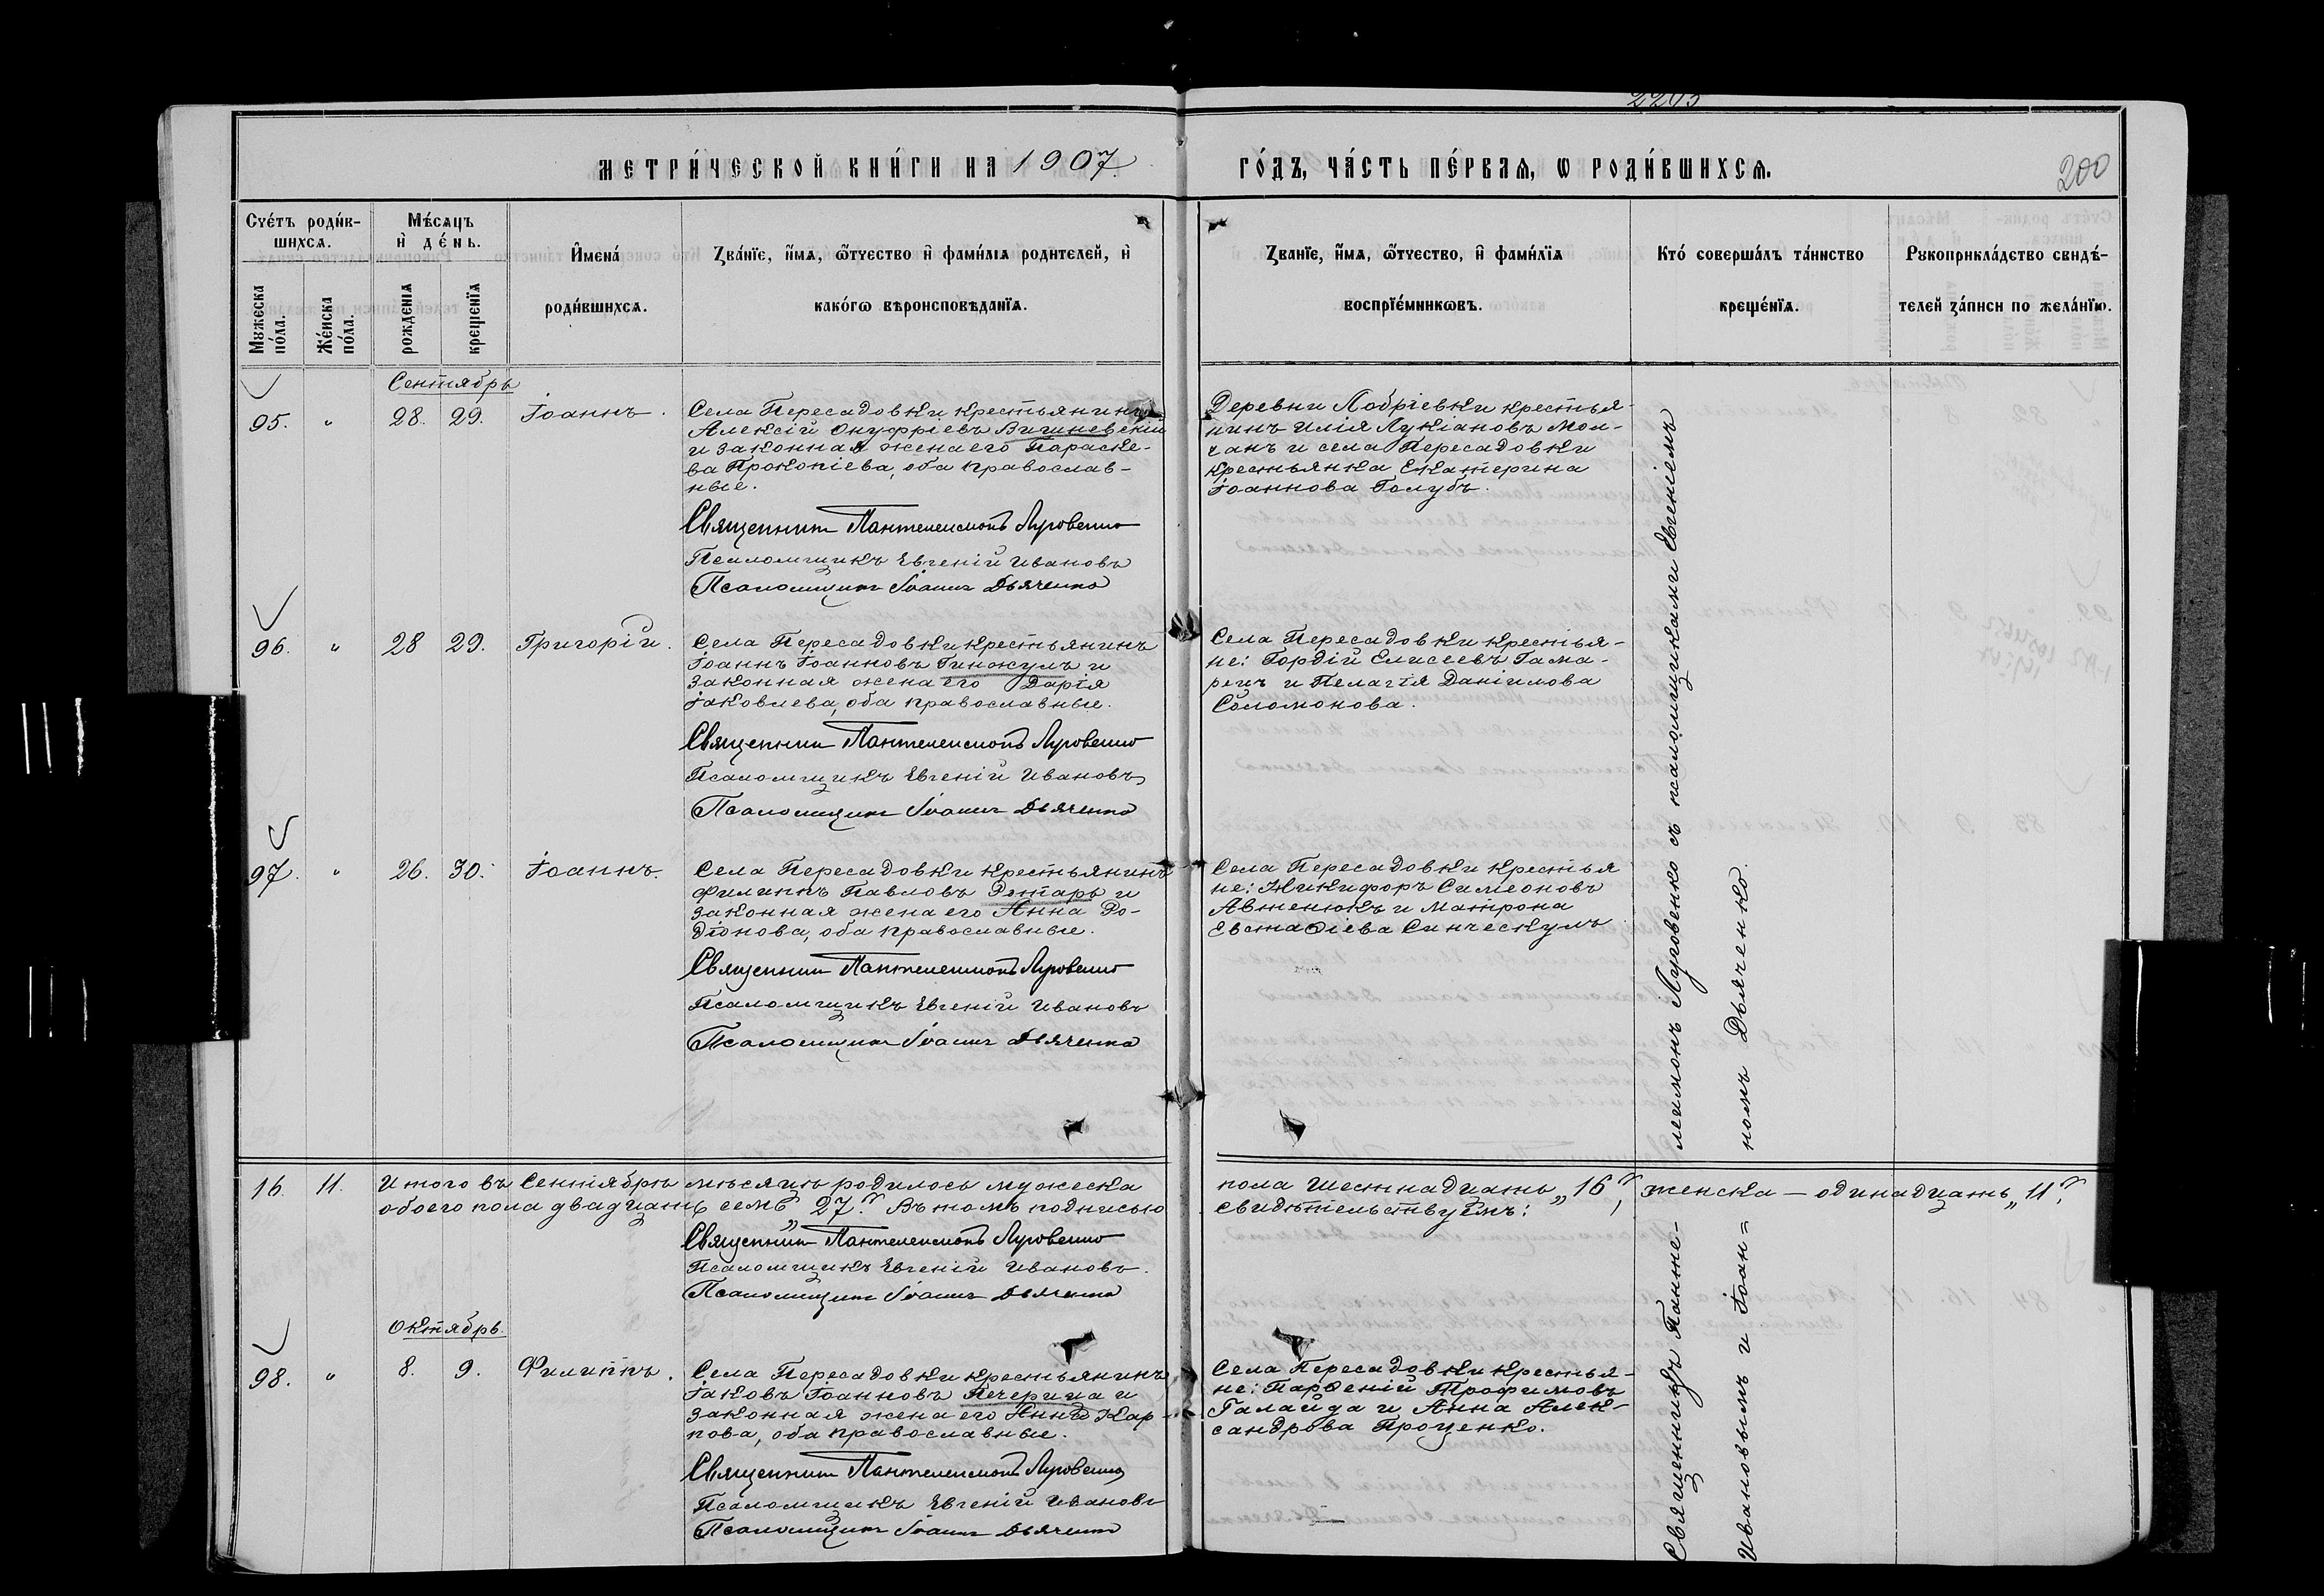 2203
МЕТРИ́ЧЕСКОЙ КНИ́ГИ НА 1907
ГО́ДЪ, ЧА́СТЬ ПЕ́РВАЯ, Ѡ РОДИ́ВШИХСЯ.
200
Сче́тъ роди́в-
шихся.
Мꙋжеска
по́ла.
Же́нска
по́ла.
Мѣ́сяцъ
и҆ де́нь.
рожденїѧ
крещенїѧ
И҆мена́
роди́вшихсѧ.
Зва́нїе, и҆́мѧ, ѻ҆́тчество и҆ фами́лїѧ родителей, и҆
како́гѡ вѣроисповѣ́данїѧ.
Зва́нїе, и҆́мѧ, ѻ҆́тчество, и҆ фами́лїѧ
воспрїе́мниковъ.
Кто́ соверша́лъ та́инство
креще́нїѧ.
Рꙋкоприкла́дство свидѣ́-
телей за́писи по жела́нїю.
Сентябрь
95. " 28. 29. Іоаннъ.
Села Пересадовки крестьянинъ
Алексій Онуфріевъ Вишневскій
и законная жена его Параске-
ва Прокопіева, оба православ-
ные.
Священникъ Пантелеимонъ Луговенко
Псаломщикъ Евгеній Ивановъ
Псаломщикъ Іоаннъ Дьяченко
Деревни Лобріевки крестья-
нинъ Илія Лукіановъ Мол-
чанъ и села Пересадовки
крестьянка Екатерина
Іоаннова Голубъ.
96. " 28 29. Григорій.
Села Пересадовки крестьянинъ
Іоаннъ Іоанновъ Гинжулъ и
законная жена его Дарія
Іаковлева, оба православные.
Священникъ Пантелеимонъ Луговенко
Псаломщикъ Евгеній Ивановъ
Псаломщикъ Іоаннъ Дьяченко
Села Пересадовки крестья-
не: Гордій Елисеевъ Гама-
регъ и Пелагія Даніилова
Соломонова.
97. " 26. 30. Іоаннъ.
Села Пересадовки крестьянинъ
Филиппъ Павловъ и
законная жена его Анна Ро-
діонова, оба православные.
Священникъ Пантелеимонъ Луговенко
Псаломщикъ Евгеній Ивановъ
Псаломщикъ Іоаннъ Дьяченко
Села Пересадовки крестья
не: Никифоръ Симеоновъ
Автенюкъ и Матрона
Евстаѳіева Синческулъ
16. 11. Итого въ Сентябрѣ мѣсяцѣ родилось мужеска
пола шестнадцать „16", женска — одинадцать „11",
обоего пола двадцать семь „27". Въ томъ подписью
свидѣтельствуемъ:
Священникъ Пантелеимонъ Луговенко
Псаломщикъ Евгеній Ивановъ.
Псаломщикъ Іоаннъ Дьяченко
Октябрь.
98. " 8. 9. Филиппъ.
Села Пересадовки крестьянинъ
Іаковъ Іоанновъ Печерица и
законная жена его Анна Кар-
пова, оба православные.
Священникъ Пантелеимонъ Луговенко
Псаломщикъ Евгеній Ивановъ
Псаломщикъ Іоаннъ Дьяченко
Села Пересадовки крестья-
не: Парѳеній Трофимовъ
Галайда и Анна Алек-
сандрова Проценко.
Священникъ Панте-
леимонъ Луговенко съ псаломщиками Евгеніемъ
Ивановымъ и Іоан=
номъ Дьяченко.